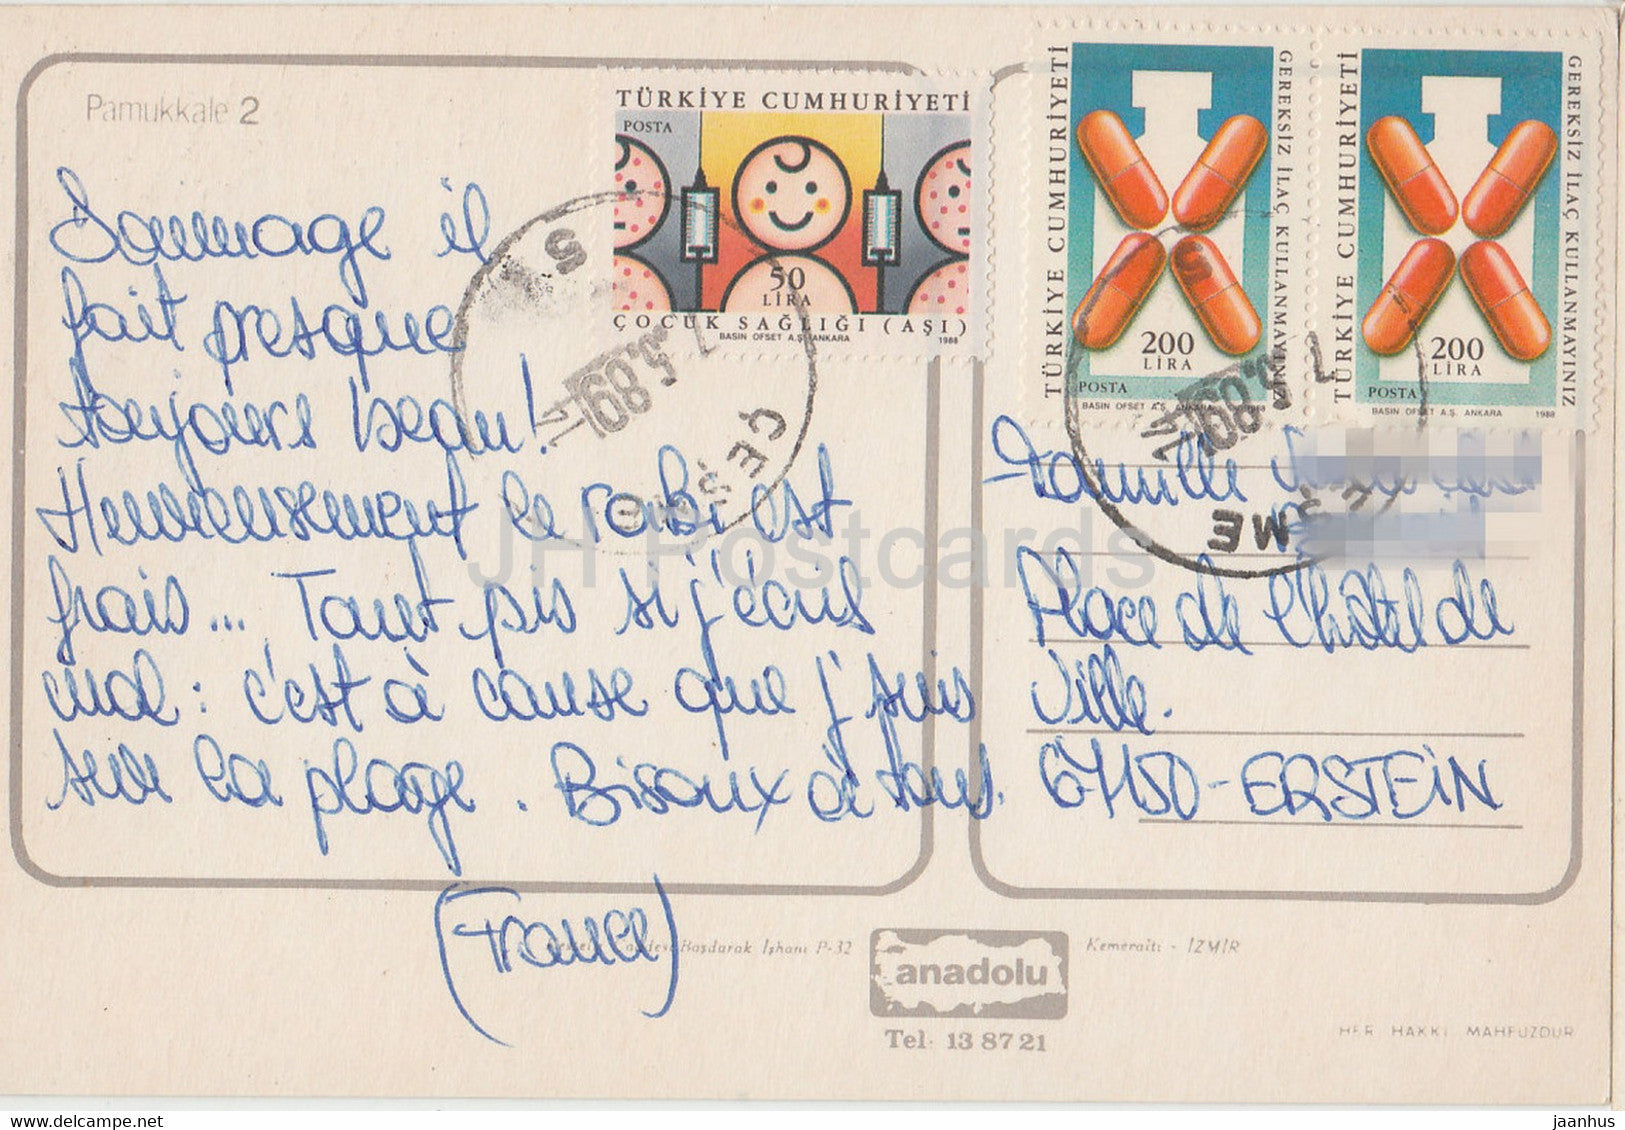 Pamukkale 2
TÜRKİYE CUMHURİYETİ
POSTA
50
LİRA
ÇOCUK SAĞLIĞI (AŞI)
BASIN OFSET A.Ş. ANKARA 1988
TÜRKİYE CUMHURİYETİ
GEREKSİZ İLAÇ KULLANMAYINIZ
200
LİRA
POSTA
BASIN OFSET A.Ş. ANKARA 1988
TÜRKİYE CUMHURİYETİ
GEREKSİZ İLAÇ KULLANMAYINIZ
200
LİRA
POSTA
BASIN OFSET A.Ş. ANKARA 1988
7.5.89
ÇEŞME
7.5.89
ÇEŞME
Dommage il
fait presque
toujours beau!
Heureusement le raki est
frais... Tant pis si j'écris
mal : c'est à cause que j'suis
sur la plage. Bisoux à tous.
Famille
Place de l'hôtel de
Ville.
67150-ERSTEIN
(France)
Başdurak İşhanı P-32
anadolu
Kemeraltı - İZMİR
Tel: 13 87 21
HER HAKKI MAHFUZDUR
JH Postcards
www.delcampe.net
jaanhus